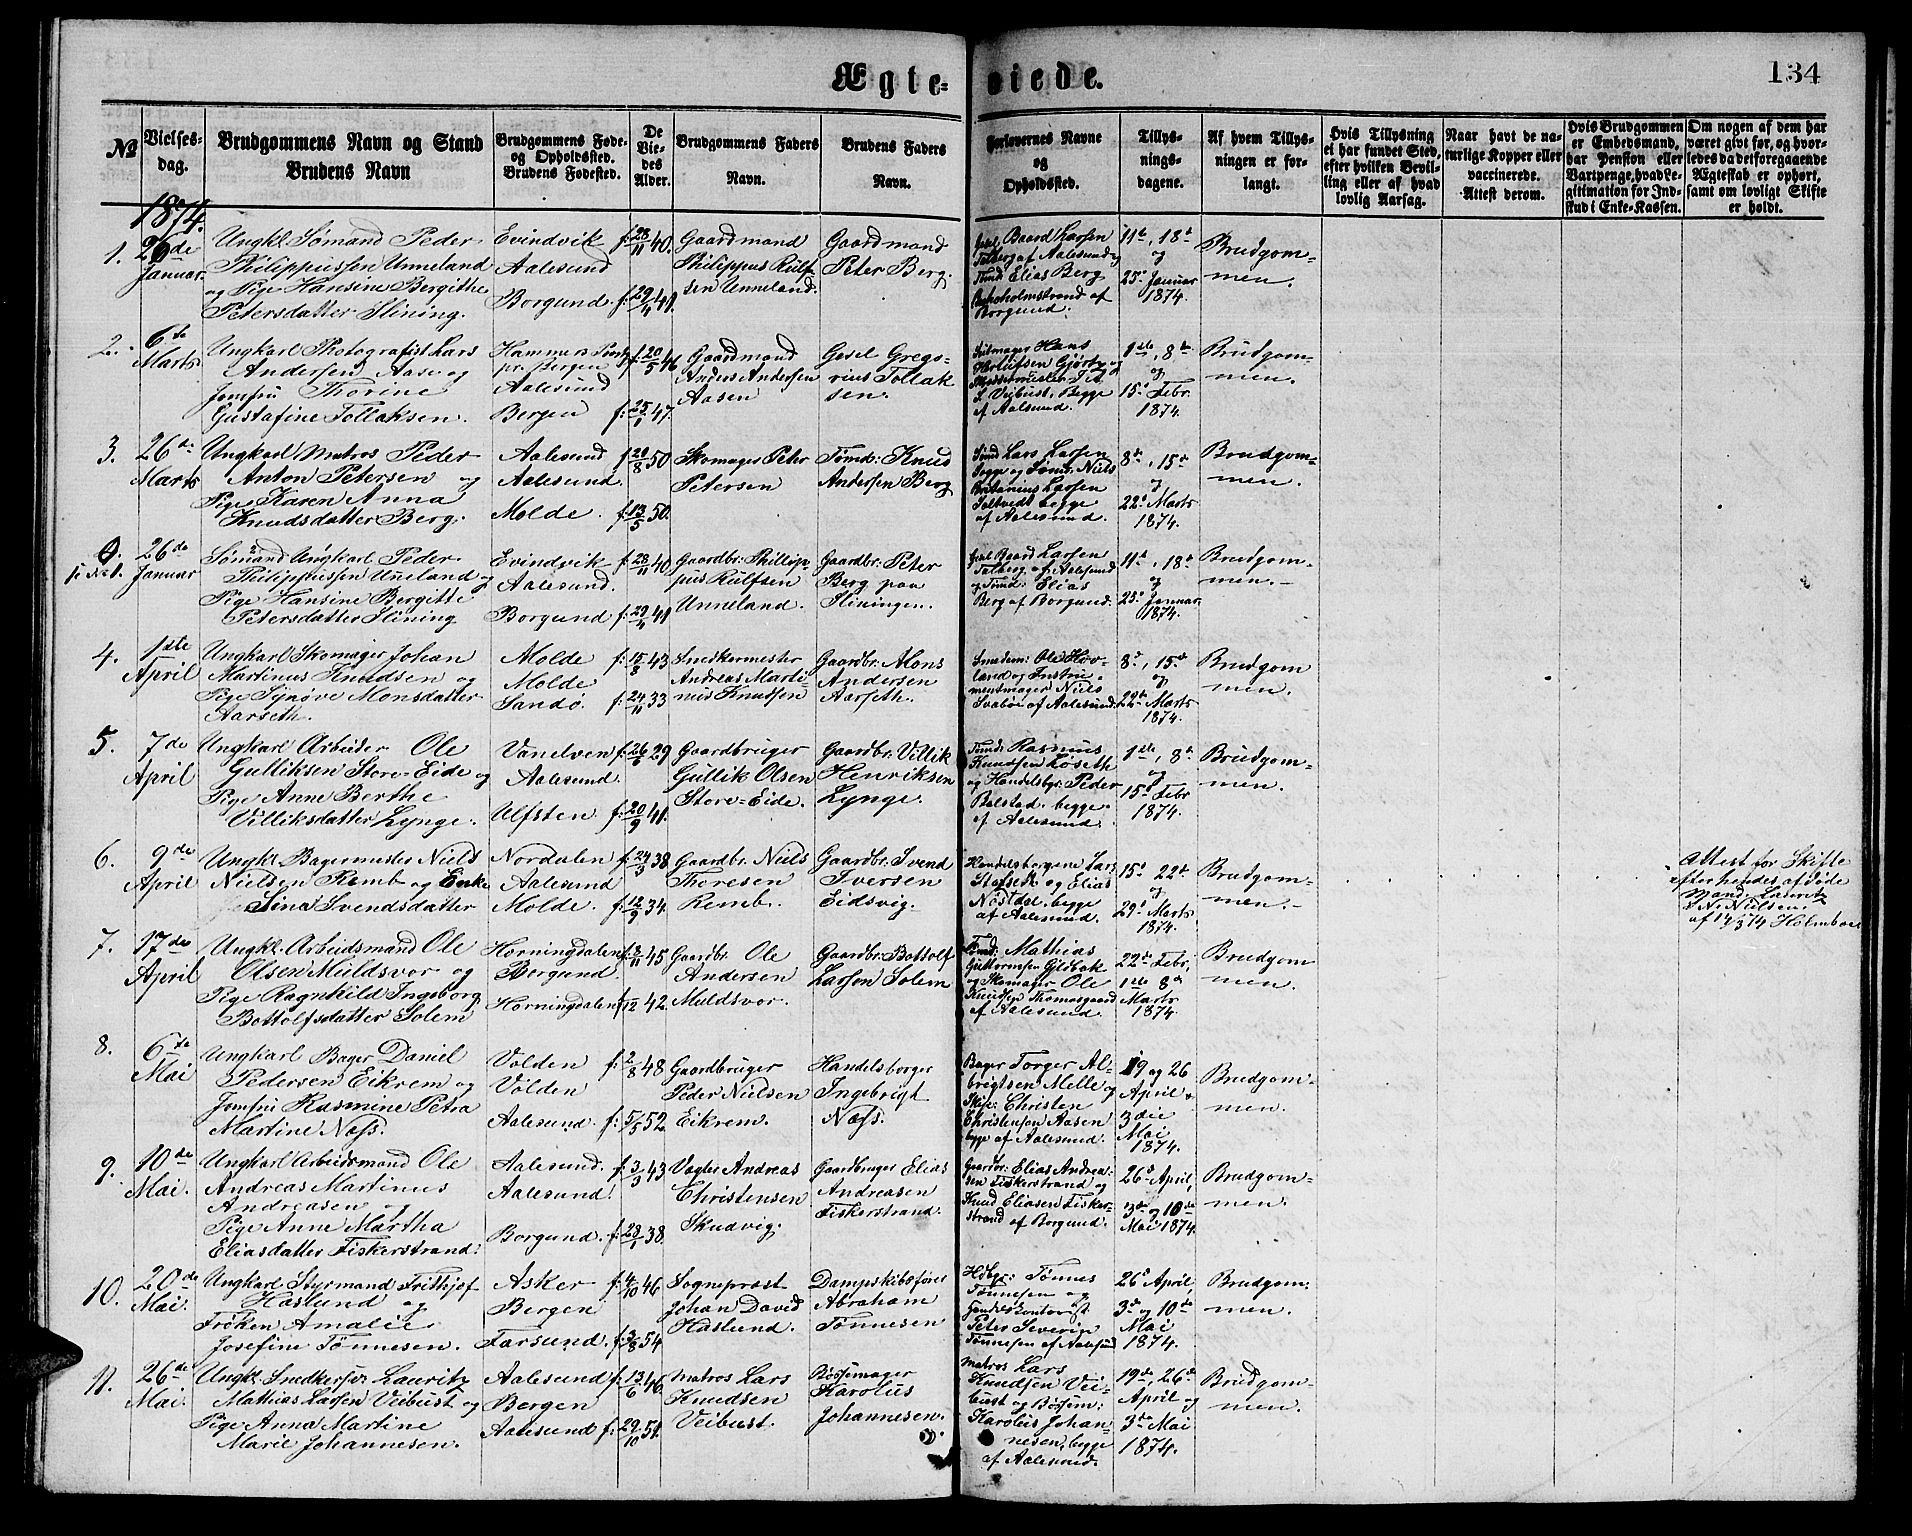 Ægteviede.
134
№
Vielses-
dag.
Brudgommens Navn og Stand
Brudens Navn
Brudgommens Føde-
og Opholdssted.
Brudens Fødested.
De
Vie-
des
Alder.
Brudgommens Faders
Navn.
Brudens Faders
Navn.
Forlovernes Navne
og
Opholdssted.
Tillys-
nings-
dagene.
Af hvem Tillys-
ningen er for-
langt.
Hvis Tillysning
ei har fundet Sted,
efter hvilken Bevil-
ling eller af hvad
lovlig Aarsag.
Naar havt de na-
turlige Kopper eller
vaccinerede.
Attest derom.
Hvis Brudgommen
er Embedsmand,
har Pension eller
Vartpenge, hvad Le-
gitimation for Ind-
skud i Enke-Kassen.
Om nogen af dem har
været givt før, og hvor-
ledes da det foregaaende
Ægteskab er ophørt,
samt om lovligt Skifte
er holdt.
1874.
1.
26de
Januar.
Ungkl. Sømand Peder
Philippussen Unneland
og Pige Hansine Bergithe
Petersdatter Slining.
Evindvik
Aalesund
Borgund.
f. 28/11 40.
f. 29/11 41.
Gaardmand
Philippus Rulf-
sen Unneland.
Gaardmand
Peter Berg.
Baard Larsen
Talberg af Aalesund og
Tømd: Elias Berg
af
Borgund.
11te, 18de
og
25de Januar
1874.
Brudgom-
men.
2.
6te
Marts
Ungkarl Photografist Lars
Andersen Aase og
Jomfru Thorine
Gustafine Tollaksen.
Hammers Præstg.
pr. Bergen
Aalesund
Bergen
f. 20/5 46
f. 25/1 47.
Gaardmand
Anders Andersen
Aasen
Gesel Grego-
rius Tollak
sen.
Hans
Gjørtz og
L. Veibust, Begge
af Aalesund.
1ste, 8de
og
15de Febr
1874.
Brudgom-
men.
3.
26de
Marts
Ungkarl Matros Peder
Anton Petersen og
Pige Karen Anna
Knudsdatter Berg.
Aalesund
Aalesund.
Molde.
f. 20/8 50
f. 13/5 50.
Skomager Peter
Petersen
Tømd: Knud
Andersen Berg
Tømd Lars Larsen
og Tømd: Niels
Larsen
begge
af Aalesund.
8de, 15de
og
22de Marts
1874.
Brudgom-
men.
0.
se No 1.
26de
Januar
Sømand Ungkarl Peder
Philippussen Uneland og
Pige Hansine Bergitte
Petersdatter Slining
Evindvik
Aalesund.
Borgund
f. 28/11 40.
f. 29/11 41
Gaardbr. Phillip-
pus Rulfsen
Unneland.
Gaardbr: Peter
Berg paa
Sliningen.
Baard Larsen
Talberg af Aalesund
og Tømd: Elias
Berg af Borgund.
11te, 18de
og
25de Januar
1874.
Brudgom-
men.
4.
1ste
April
Ungkarl Skomager Johan
Martinus Knudsen og
Pige Synøve Monsdatter
Aarseth.
Molde
Molde
Sandø.
f. 15/8 43
f. 24/11 33
Snedkermester
Andreas Marti-
nus Knudsen
Gaardbr: Mons
Andersen
Aarseth.
Smedem: Ole Hov-
land og Instru-
mentmager Niels
Svabøe af Aalesund.
8de, 15de
og
22de Marts
1874.
Brudgom
men.
5.
7de
April
Ungkarl Arbeider Ole
Gulliksen Store-Eide og
Pige Anne Berthe
Villiksdatter Lynge.
Vanelven
Aalesund.
Ulfsten
f. 26/6 29
f. 20/9 41.
Gaardbruger
Gullik Olsen
Store-Eide.
Gaardbr. Villik
Henriksen
Lynge.
Tømd: Rasmus
Knudsen Løseth
og Handelsbgr. Peder
Balstad, begge
af Aalesund.
1ste, 8de
og
15de Febr
1874.
Brudgom-
men.
6.
9de
April
Ungkl. Bagermester Niels
Nielsen Remb og Enke
Sina Svendsdatter
Nordalen
Aalesund
Molde.
f. 24/3 38.
f. 12/9 34.
Gaardbr. Niels
Thoresen
Remb.
Gaardbr. Svend
Iversen
Eidsvig.
Handelsborgerne Lars
Stafseth og Elias
Nøstdal, begge
af Aalesund.
15de 22de
og
29de Marts
1874.
Brudgom-
men.
Attest for Skifte
efter hendes afdøde
Mand Lauritz
N. Nielsen.
af 14/3 74 Holmboe
7.
17de
April
Ungkl. Arbeidsmand Ole
Olsen Muldsvor og
Pige Ragnhild Ingeborg
Bottolfsdatter Solem
Horningdalen
Borgund.
Horningdalen
f. 8/11 45
f. /12 42.
Gaardbr. Ole
Andersen
Muldsvor.
Gaardbr: Bottolf
Larsen Solem
Tømd: Mathias
Guttormsen
og Skomager Ole
Knudsen Thomasgaard
af Aalesund.
22de Febr,
1ste 8de
Marts
1874.
Brudgom
men.
8.
6te
Mai
Ungkarl Bager Daniel
Pedersen Eikrem og
Jomfru Rasmine Petra
Martine Næss.
Volden
Volden
Aalesund.
f. 2/8 48
f. 5/5 52.
Gaardbruger
Peder Nielsen
Eikrem.
Handelsborger
Ingebrigt
Næss.
Bager Torger Al-
brigtsen Melle og
Christen
Christensen Aasen
begge af Aalesund.
19 og 26
April &
3die
Mai
1874.
Brudgom-
men.
9.
10de
Mai.
Ungkarl Arbeidsmand Ole
Andreas Martinus
Andreasen og
Pige Anne Martha
Eliasdatter Fiskerstrand.
Aalesund.
Aalesund.
Borgund.
f. 3/3 43
f. 28/1 38.
Vægter Andreas
Christensen
Skudvig.
Gaardbruger Elias
Andreasen
Fiskerstrand.
Gaardbr: Elias Andrea-
sen Fiskerstrand og
Knud Eliasen Fisker-
strand af Borgund.
26de April,
3de og 10de
Mai 1874.
Brudgom-
men.
10.
20de
Mai.
Ungkarl Styrmand Frithjof
Haslund og
Frøken Amalie
Josefine Tønnesen.
Asker
Bergen
Farsund.
f. 4/10 46
f. 3/8 54
Sogneprest
Johan David
Haslund.
Dampskibsfører
Abraham
Tønnesen
Hdbgr: Tønnes
Tønnesen og
Handelskontorist
Peter Severin
Tønnesen af Aalesund
26de April,
3de og 10de
Mai
1874.
Brudgom-
men.
11.
26de
Mai.
Ungkl. Snedkersv. Lauritz
Mathias Larsen Veibust og
Pige Anna Martine
Marie Johannesen.
Aalesund
Bergen
Aalesund
f. 13/6 46
f. 29/10 51.
Matros Lars
Knudsen
Veibust.
Bøssemager
Karolus
Johannesen.
Matros Lars
Knudsen Vei-
bust og Bøssem:
Karolus Johan-
nesen, begge
af Aalesund.
19de, 26de
April og
3de Mai
1874.
Brudgom-
men.